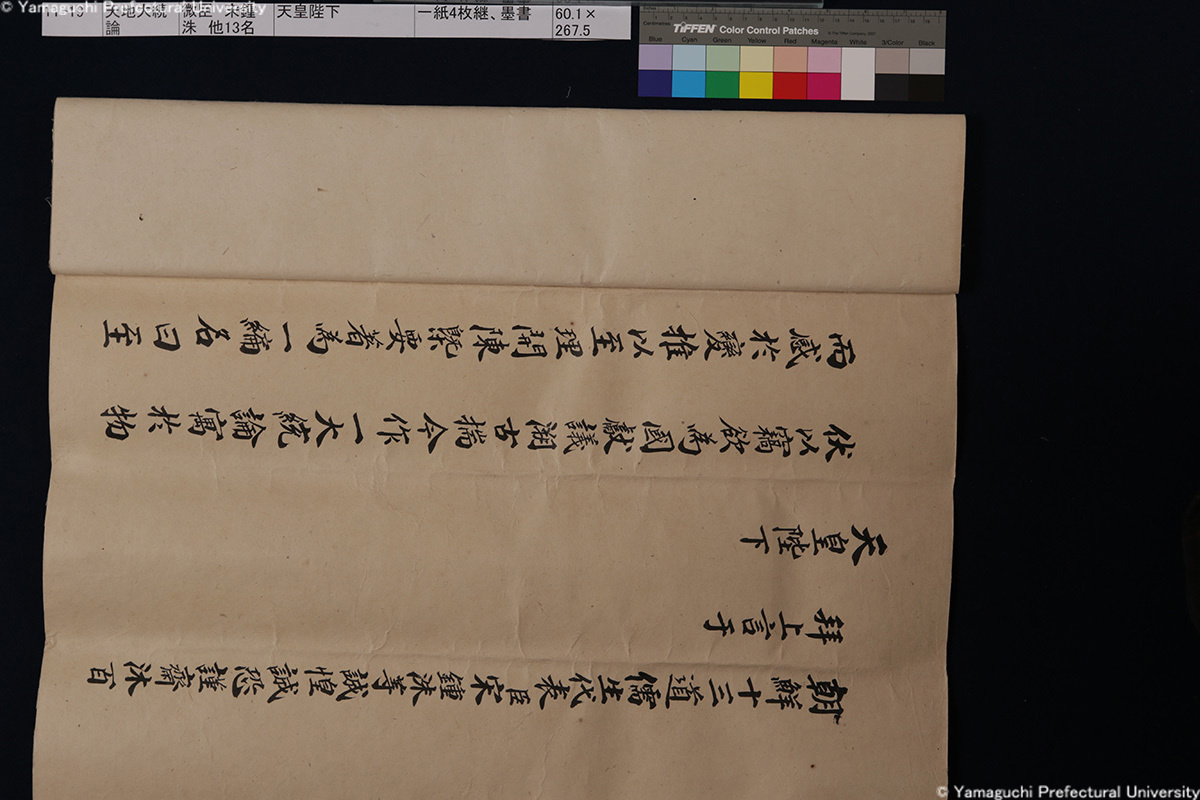 © Yamaguchi Prefectural University
天地大統論
微臣 宋鍾洙 他13名
天皇陛下
一紙4枚継、墨書
60.1×
267.5
Inches
Centimetres
TIFFEN® Color Control Patches
© The Tiffen Company, 2007
Blue Cyan Green Yellow Red Magenta White 3/Color Black
朝鮮十三道儒生代表臣宋鍾洙等誠惶誠恐謹齋沐百
拜上言于
天皇陛下
伏以竊欲為國獻議溯古揣今作一大統論寓於物
而感於變推以至理開陳槩要著為一編名曰至
© Yamaguchi Prefectural University